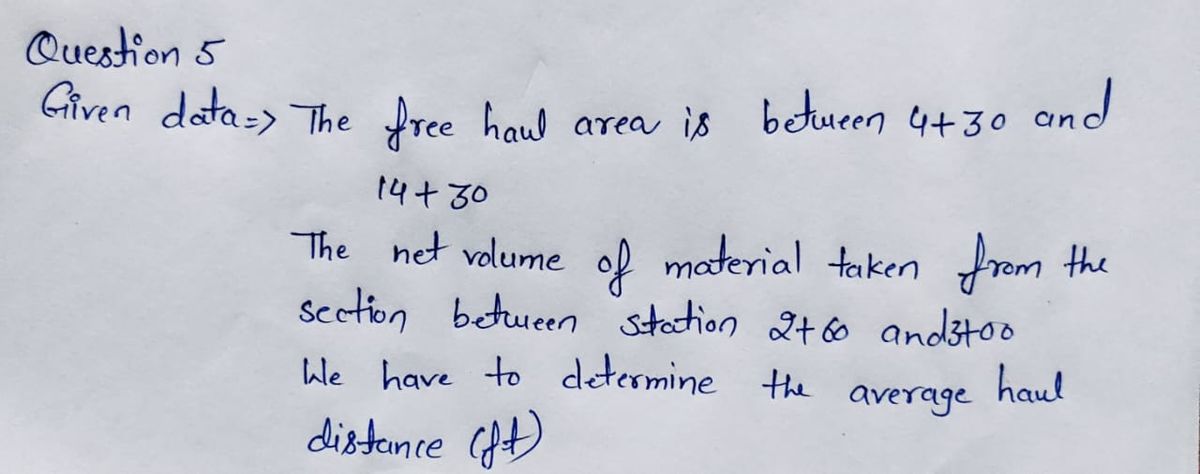 Question 5
Given data=> The free haul area is between 4+30 and
14+30
The net volume of material taken from the
section between station 2+60 and 3+00
We have to determine the average haul
distance (ft)